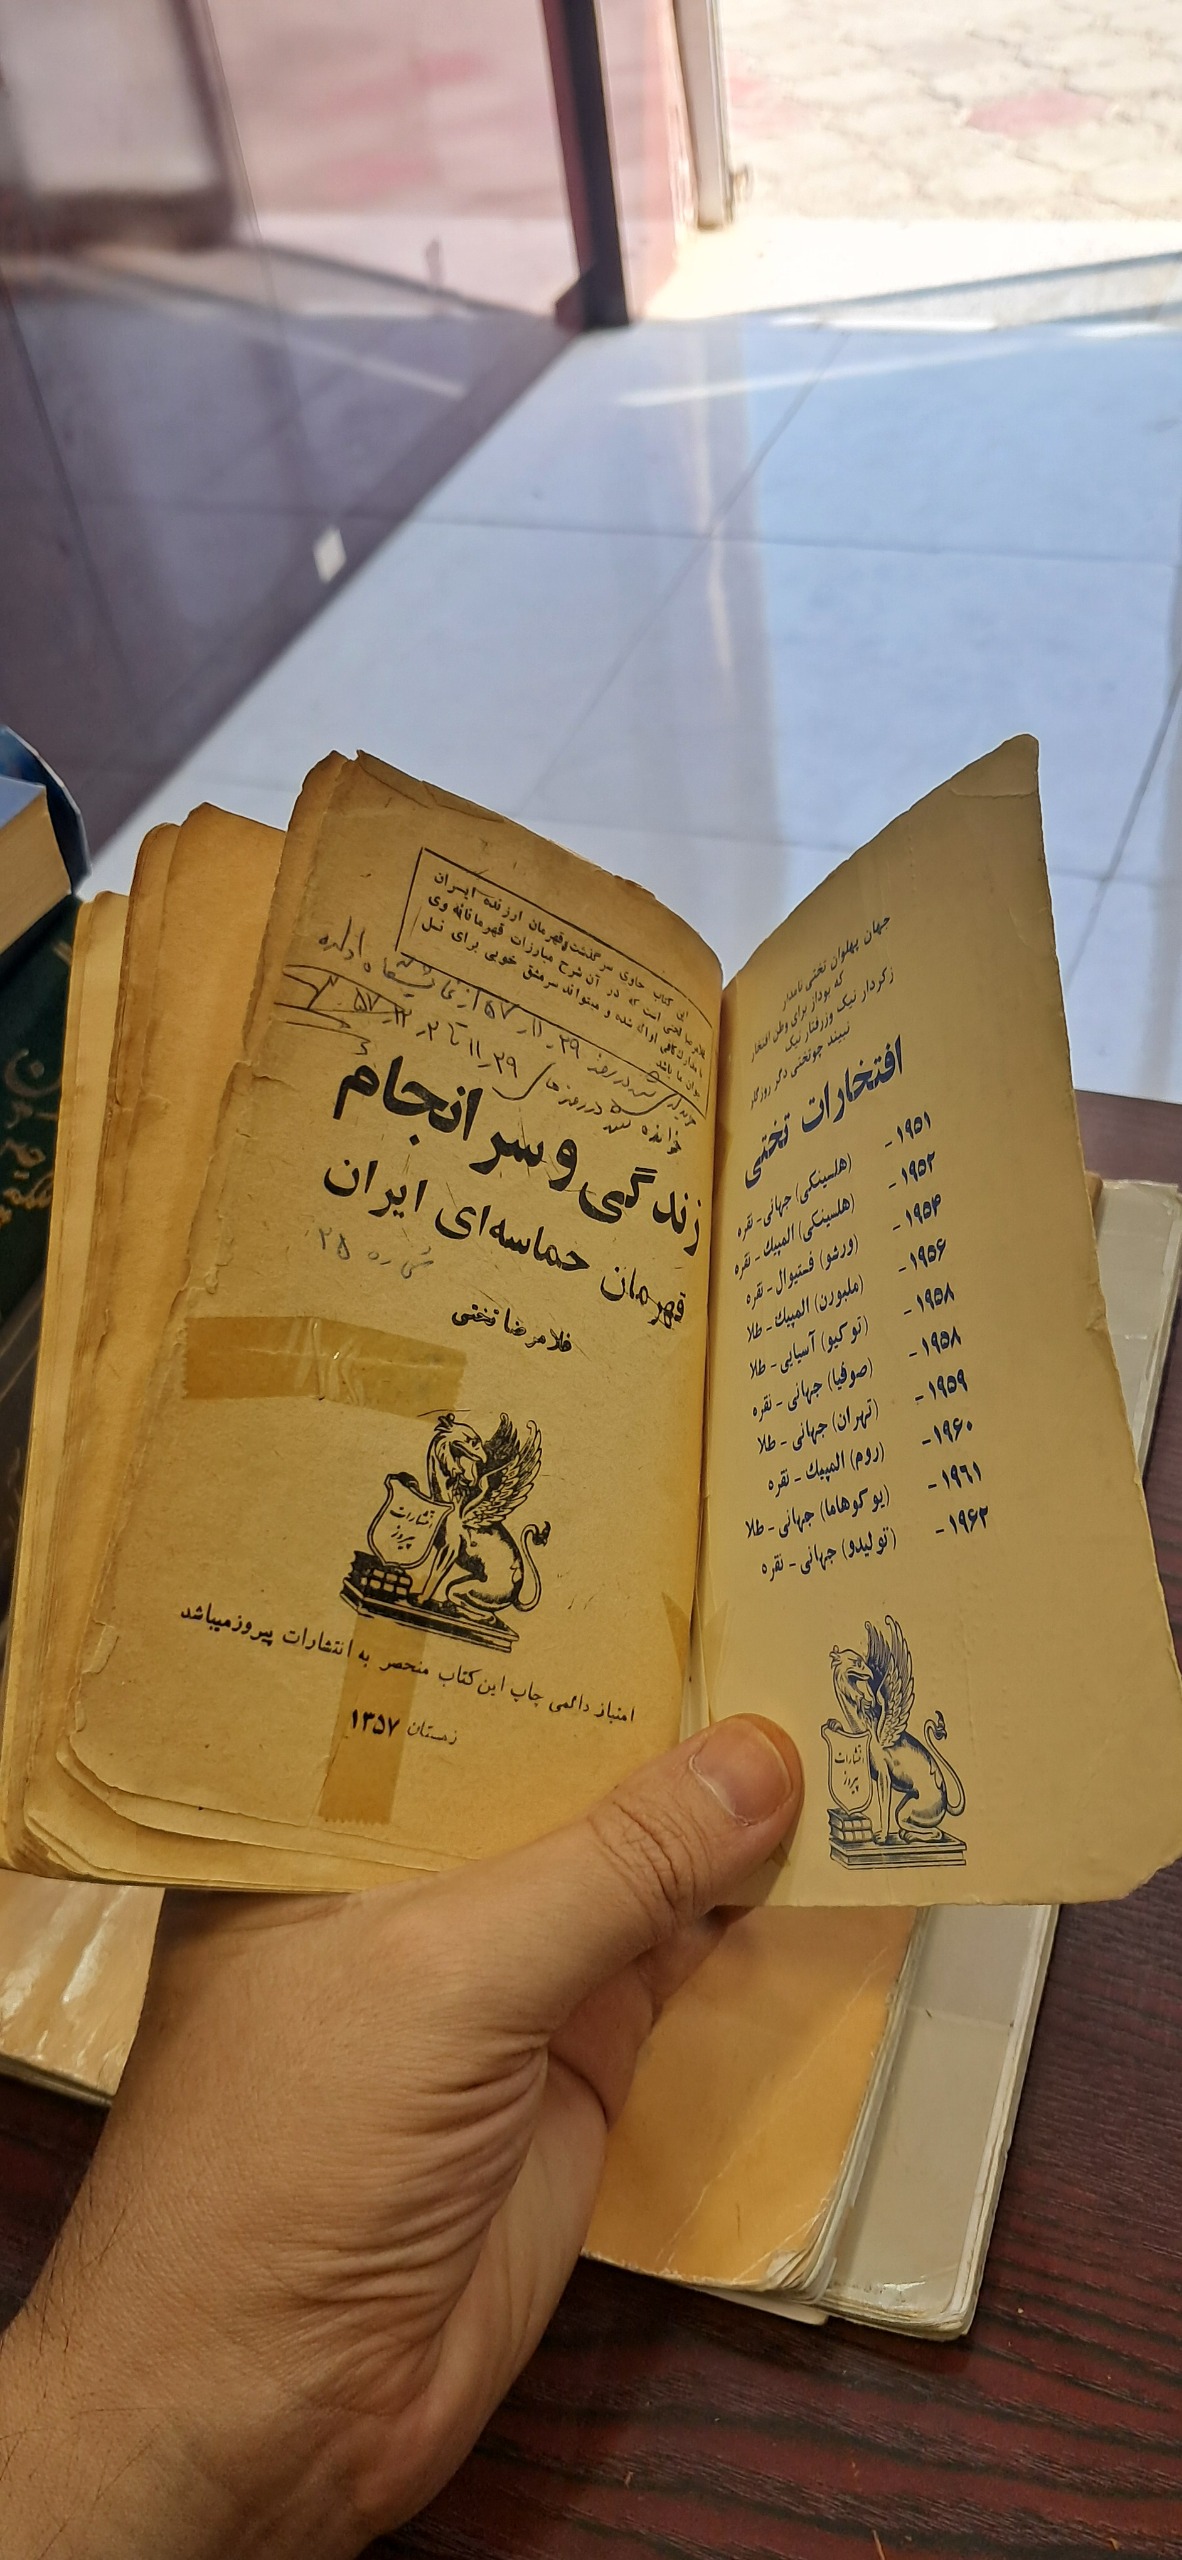 جهان پهلوان تختی نامدار
که بوداز برای وطن افتخار
زکردار نیک وزرفتار نیک
نبیند چوتختی دگر روزگار
افتخارات تختی
۱۹۵۱ - (هلسینکی) جهانی - نقره
۱۹۵۲ - (هلسینکی) المپیك - نقره
۱۹۵۴ - (ورشو) فستیوال - نقره
۱۹۵۶ - (ملبورن) المپیك - طلا
۱۹۵۸ - (توکیو) آسیایی - طلا
۱۹۵۸ - (صوفیا) جهانی - نقره
۱۹۵۹ - (تهران) جهانی - طلا
۱۹۶۰ - (روم) المپیك - نقره
۱۹۶۱ - (یوکوهاما) جهانی - طلا
۱۹۶۲ - (تولیدو) جهانی - نقره
انتشارات
پیروز
این کتاب حاوی سرگذشت قهرمان ارزنده ایران
غلامرضا تختی است که در آن شرح مبارزات قهرمانانه وی
با مدارك کافی ارائه شده و میتواند سرمشق خوبی برای نسل
جوان ما باشد
خریداری شد در روز ۲۹ـ۱۱ـ۵۷ از نمایشگاه اداره
خوانده شد در روزها ۲۹ـ۱۱ تا ۲ـ۱۲ـ۵۷
زندگی و سرانجام
قهرمان حماسه‌ای ایران
شماره ۲۵
غلامرضا تختی
انتشارات
پیروز
امتیاز دائمی چاپ این کتاب منحصر به انتشارات پیروز میباشد
زمستان ۱۳۵۷